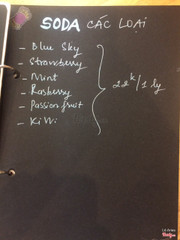 SODA CÁC LOẠI
- Blue Sky
- Strawberry
- Mint
- Rasberry
- Passion fruit
- Kiwi
22k/1 ly